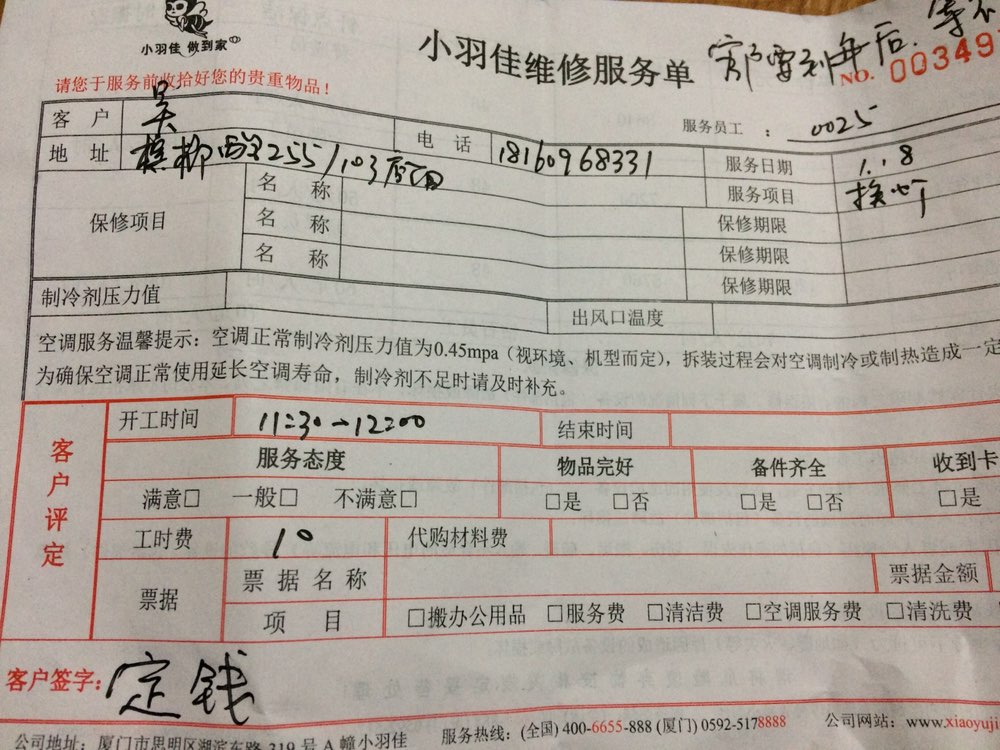 小羽佳 做到家
小羽佳维修服务单
要到年后
NO. 00349
请您于服务前收拾好您的贵重物品！
服务员工 ： 0025
客 户 吴
电 话 18160968331
服务日期 1.8
地 址 255/103
服务项目 换
保修项目
名 称 保修期限
名 称 保修期限
名 称 保修期限
制冷剂压力值
出风口温度
空调服务温馨提示：空调正常制冷剂压力值为0.45mpa（视环境、机型而定），拆装过程会对空调制冷或制热造成一定
为确保空调正常使用延长空调寿命，制冷剂不足时请及时补充。
客户评定
开工时间 11:30→12:00 结束时间
服务态度 物品完好 备件齐全 收到卡
满意□ 一般□ 不满意□ □是 □否 □是 □否 □是
工时费 10 代购材料费
票据 票据名称 票据金额
项 目 □搬办公用品 □服务费 □清洁费 □空调服务费 □清洗费
客户签字: 定钱
公司地址：厦门市思明区湖滨东路319号A幢小羽佳 服务热线：(全国) 400-6655-888 (厦门) 0592-5178888 公司网站：www.xiaoyuji